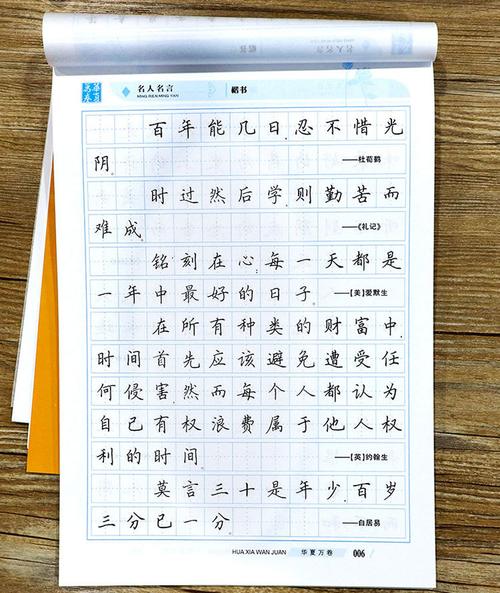 华夏万卷
名人名言 楷书
MING REN MING YAN
百年能几日,忍不惜光
阴。 ——杜荀鹤
时过然后学,则勤苦而
难成。 ——《礼记》
铭刻在心:每一天都是
一年中最好的日子。 ——[美]爱默生
在所有种类的财富中,
时间首先应该避免遭受任
何侵害。然而每个人都认为
自己有权浪费属于他人权
利的时间。 ——[英]约翰生
莫言三十是年少,百岁
三分已一分。 ——白居易
HUA XIA WAN JUAN 华夏万卷 006